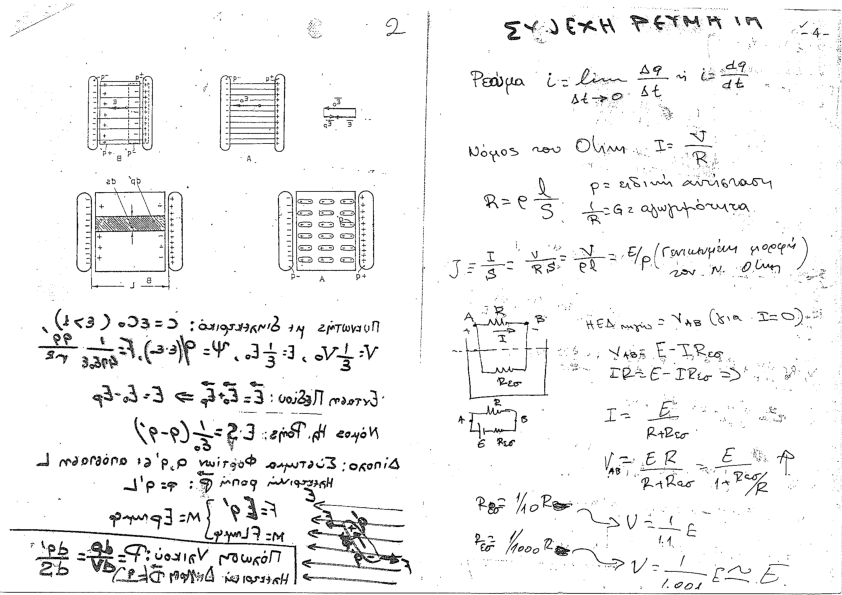 2
B
A
B
A
L
Πυκνωτής με διηλεκτρικό: C = εC₀ (ε>1)
V = 1/ε V₀, E = 1/ε E₀, Ψ = q/(ε·ε₀), F = 1/4πεε₀ qq/r²
Ένταση Πεδίου: E⃗ = E⃗₀ + E⃗p ⇒ E = E₀ - Ep
Νόμος Ηλ. Ροής: E·S = 1/ε₀ (q-q')
Δίπολο: Σύστημα Φορτίων q, q' σε απόσταση L
Ηλεκτρική ροπή p⃗: p = q'L
F = Eq' } M = Epημφ
M = FLημφ
Πόλωση Υλικού: P = dp/dV = dq'/dS
Ηλεκτρική
ΣΥΝΕΧΗ ΡΕΥΜΑΤΑ
-4-
Ρεύμα i = lim Δt→0 Δq/Δt ή i = dq/dt
Νόμος του Ohm I = V/R
R = ρ l/S ρ = ειδική αντίσταση
1/R = G = αγωγιμότητα
J = I/S = V/RS = V/ρl = E/ρ (Γενικευμένη μορφή του ν. Ohm)
A R B
+ I -
Rεσ
R
A B
E Rεσ
ΗΕΔ πηγής = V_AB (για I=0)
V_AB = E - IRεσ
IR = E - IRεσ =>
I = E/R+Rεσ
V_AB = ER/R+Rεσ = E/1+Rεσ/R ↑
Rεσ = 1/10 R → V = 1/1.1 E
Rεσ = 1/1000 R → V = 1/1.001 E ≃ E